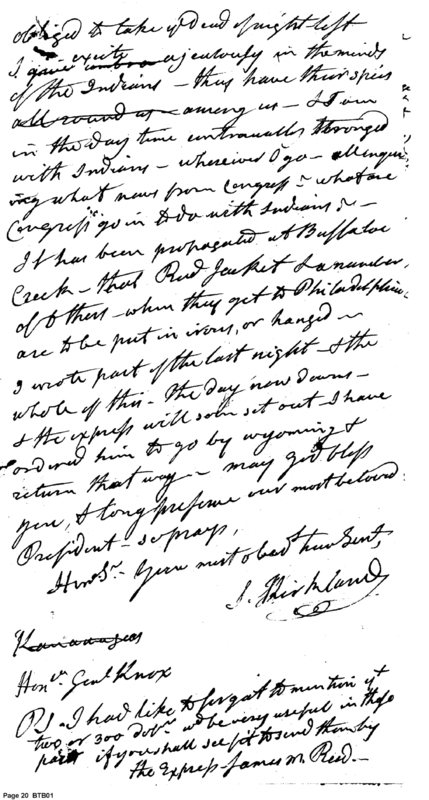 obliged to take up dead of night lest
I gave excite a jealousy in the minds
of the Indians – they have their spies
all round us – among us – I am
in the day time continually thronged
with Indians – wherever I go – all enquir
ing what news from Congress – what are
Congress go in to do with Indians &c –
It has been propagated at Buffaloe
Creek – that Red Jacket & a number
of others – when they get to Philadelphia
are to be put in irons, or hanged –
I wrote part of the last night – & the
whole of this – The day now dawns –
& the express will soon set out – I have
ordered him to go by wyoming &
return that way – may god bless
you, & long preserve our most beloved
President – so prays,
Hond Sr. your most obedt huml Servt,
S. Kirkland
Kanandagua
Honble Genl Knox
P.S. I had like to forgot to mention yt
two or 300 Dolrs wd be very useful in these
parts if you shall see fit to send them by
the Express James M. Reed. –
Page 20 BTB01